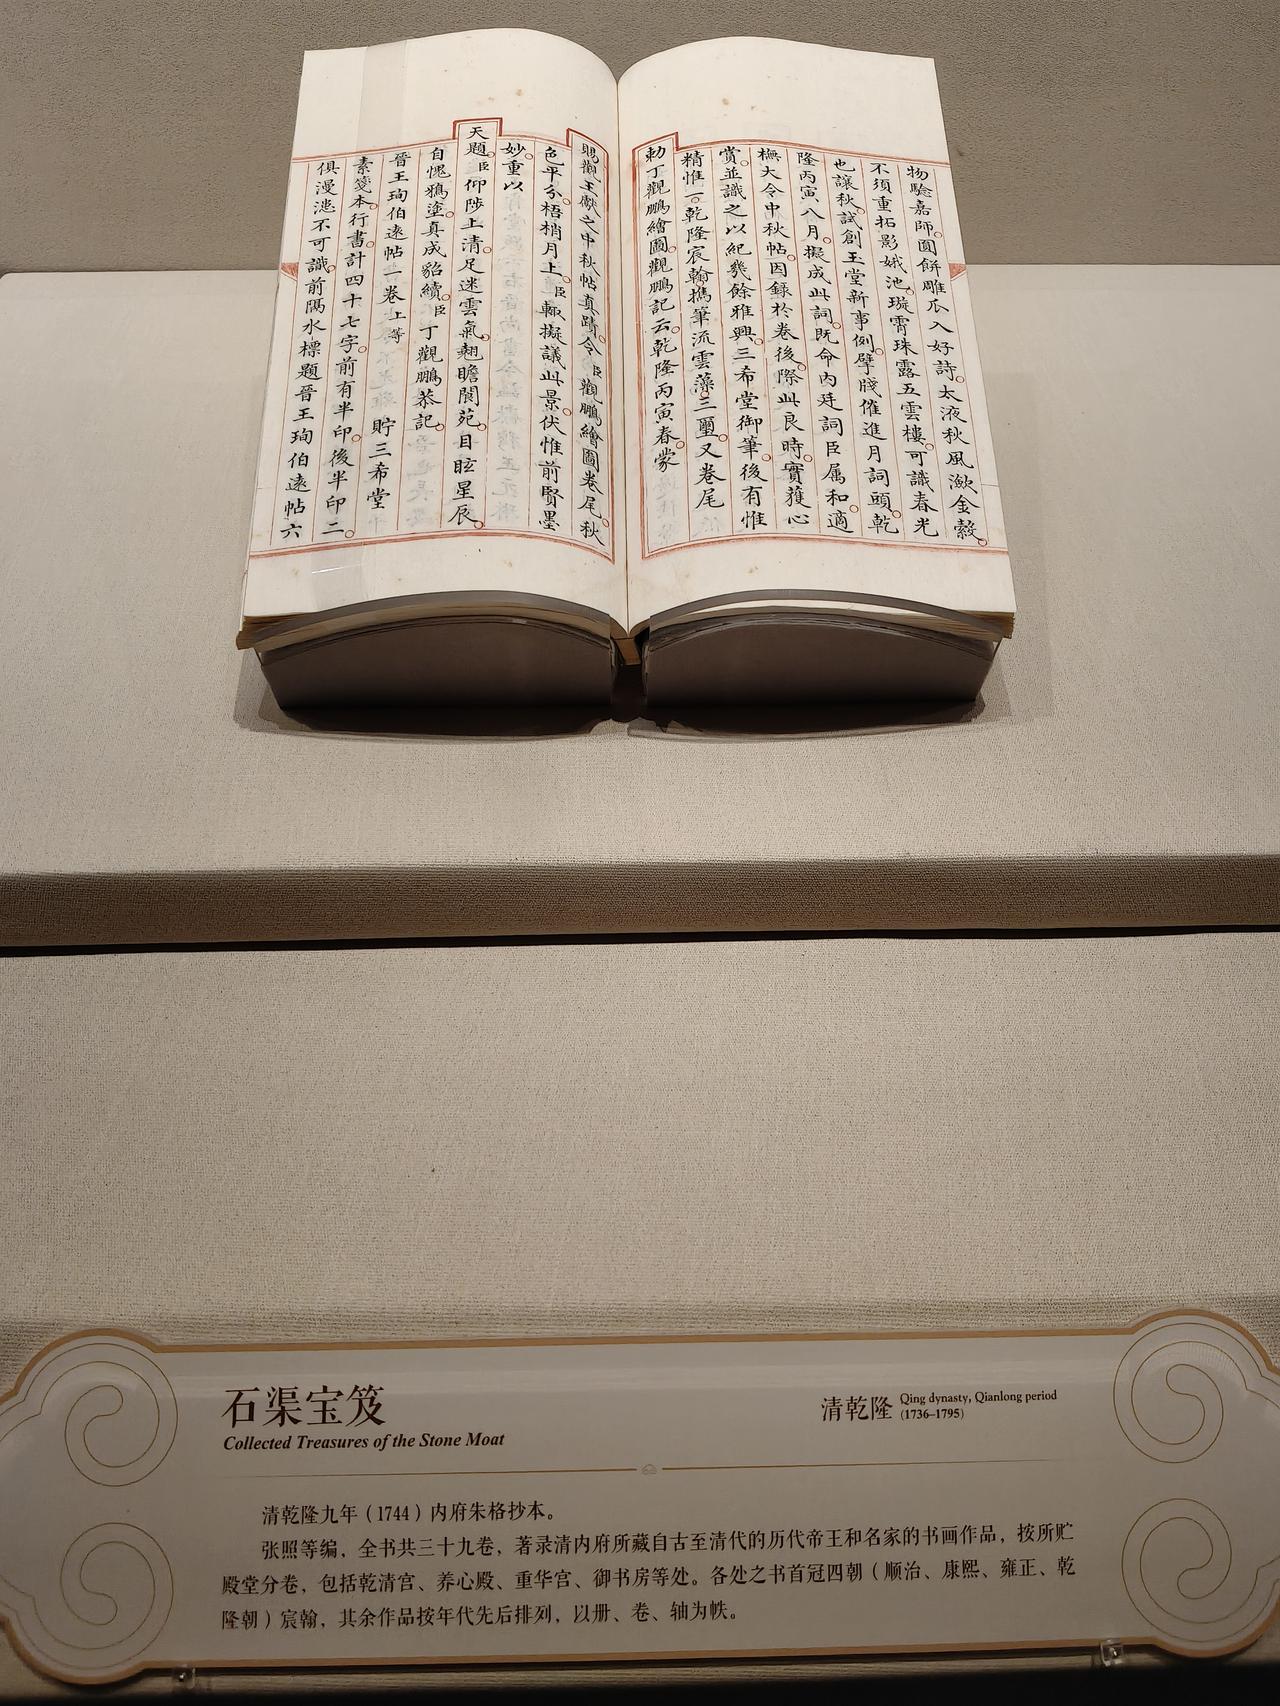 物驗嘉師圓餅雕瓜入好詩太液秋風漵金縠
不須重拓影娥池璇霄珠露五雲樓可識春光
也讓秋試創玉堂新事例擘牋催進月詞頭乾
隆丙寅八月擬成此詞既命內廷詞臣属和適
橅大令中秋帖因録於卷後際此良時實獲心
賞並識之以紀幾餘雅興三希堂御筆後有惟
精惟一乾隆宸翰擕筆流雲藻三璽又卷尾
勅丁觀鵬繪圖觀鵬記云乾隆丙寅春蒙
賜觀王獻之中秋帖真蹟令臣觀鵬繪圖卷尾秋
色平分梧梢月上臣輙擬議此景伏惟前賢墨
妙重以
天題臣仰陟上清足迷雲氣翹瞻閬苑目眩星辰
自愧鴉塗真成貂續臣丁觀鵬恭記
晉王珣伯逺帖一卷上等 貯三希堂
素箋本行書計四十七字前有半印後半印二
俱漫漶不可識前隔水標題晉王珣伯逺帖六
石渠宝笈
Collected Treasures of the Stone Moat
清乾隆 Qing dynasty, Qianlong period
(1736–1795)
清乾隆九年（1744）内府朱格抄本。
张照等编，全书共三十九卷，著录清内府所藏自古至清代的历代帝王和名家的书画作品，按所贮
殿堂分卷，包括乾清宫、养心殿、重华宫、御书房等处。各处之书首冠四朝（顺治、康熙、雍正、乾
隆朝）宸翰，其余作品按年代先后排列，以册、卷、轴为帙。